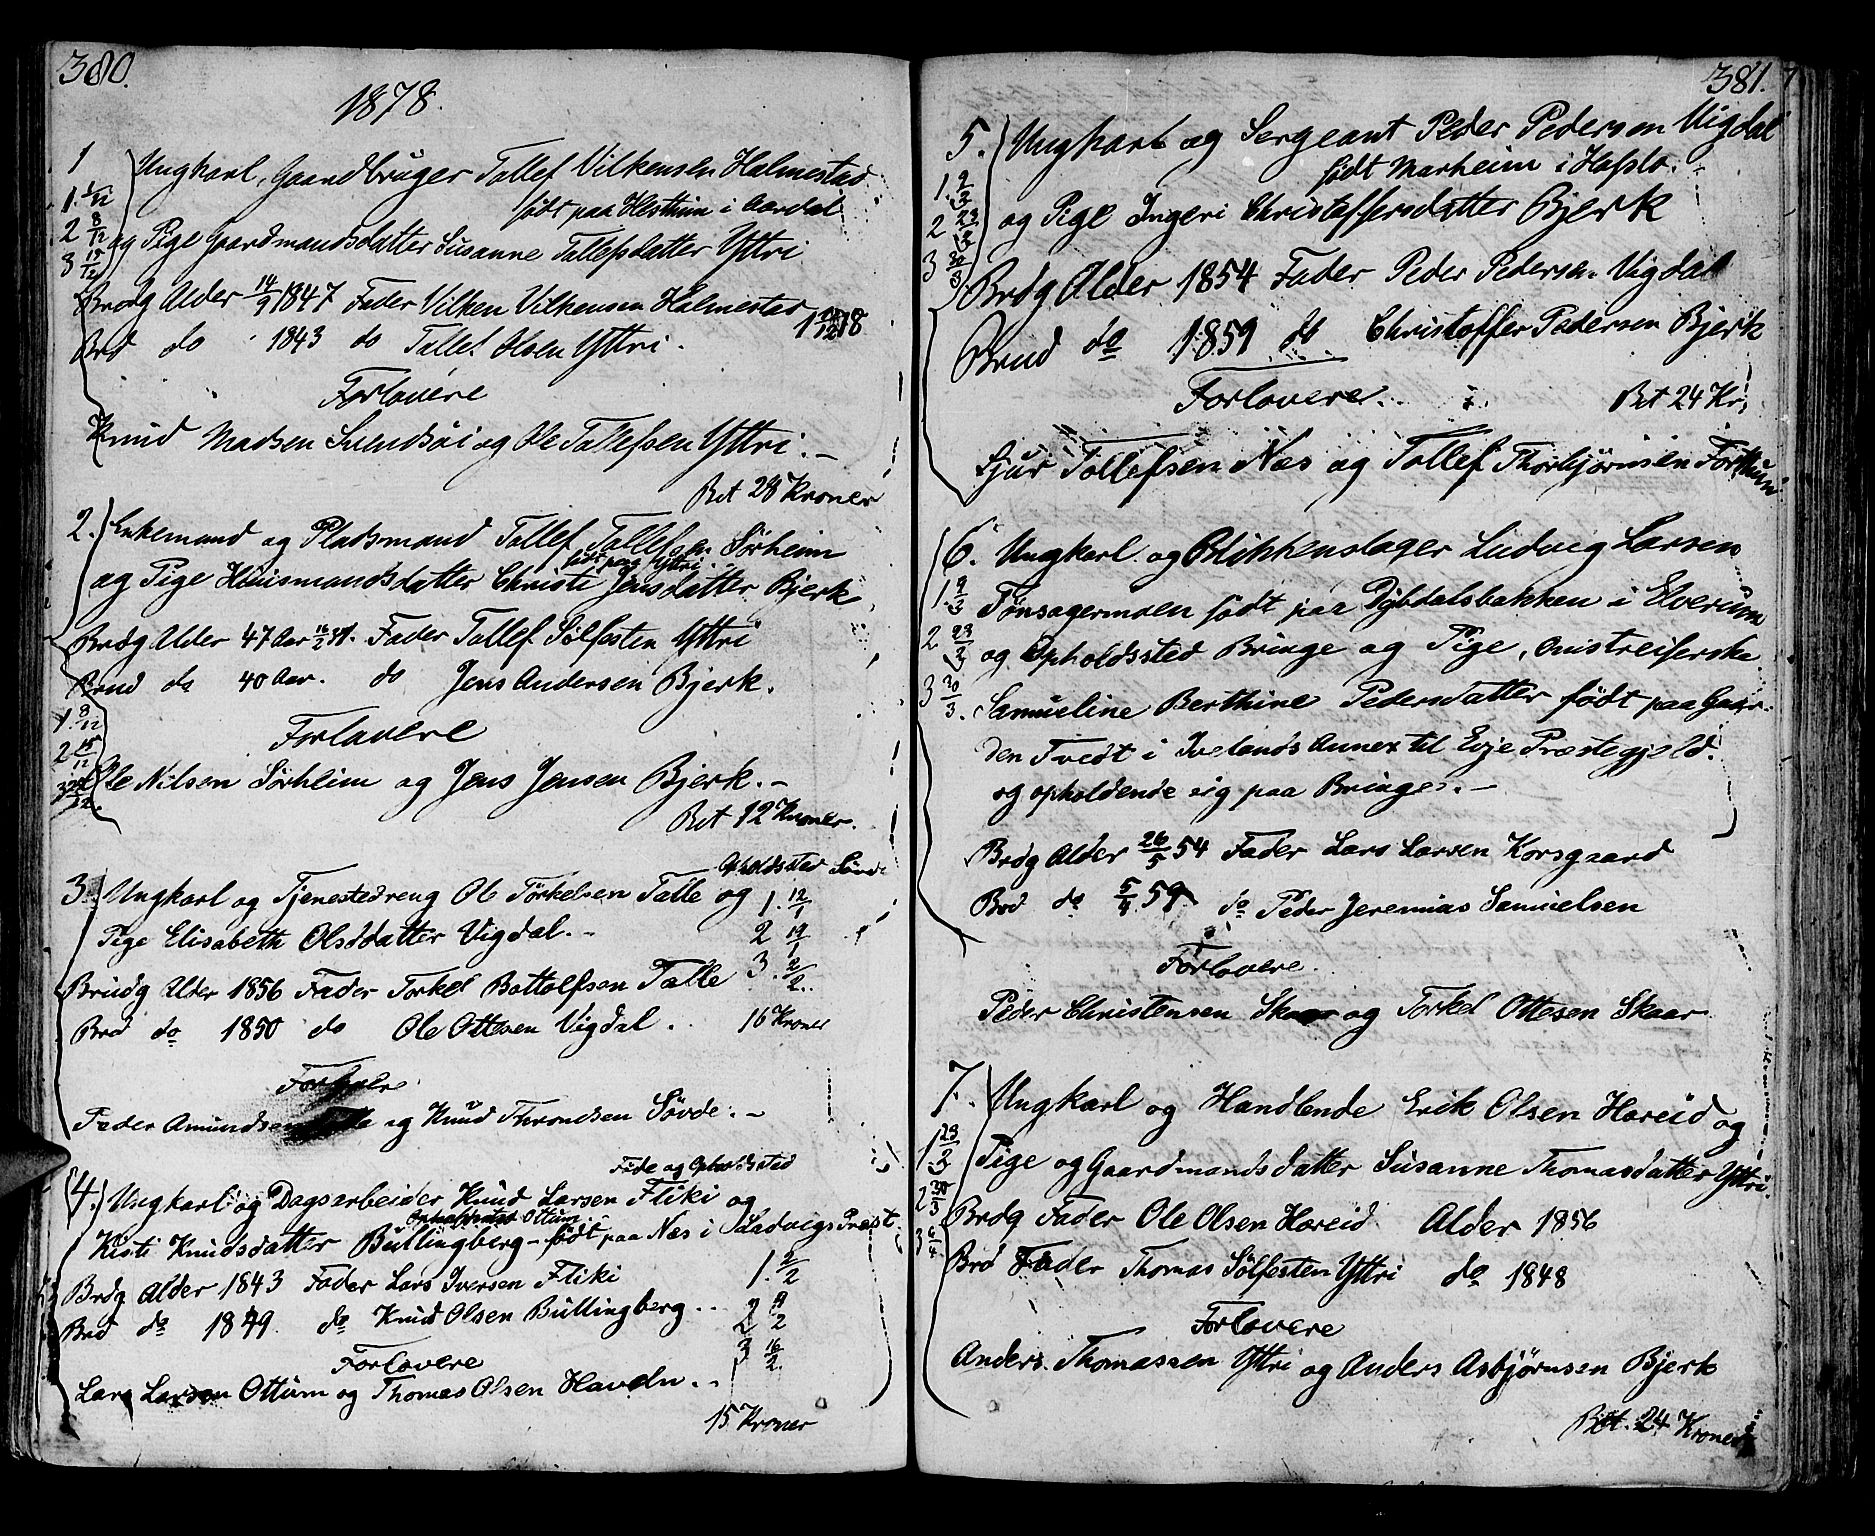 380.
1878.
1
1. 1/12
2 8/12
3 15/12
Ungkarl, Gaardbruger Tollef Vilkensen Halmestad
født paa Hesthum i Aardal
og Pige Gaardmandsdatter Susanne Tollefsdatter Yttri
Brdg Alder 14/9 1847 Fader Vilken Vilkensen Halmestad
Brd do 1843 do Tollef Olsen Yttri.
Forlovere
Knud Madsen Svendsøi og Ole Tollefsen Yttri. –
Bet 28 Kroner
2. Enkemand og Pladsmand Tollef Tollefsen Sørheim
født paa Yttri
og Pige Huusmandsdatter Christi Jensdatter Bjerk
Brdg Alder 47 Aar 16/2 31. Fader Tollef Sølfesten Yttri
Brud do 40 Aar. do Jens Andersen Bjerk.
1. 8/12
2 15/12
3 22/12
Forlovere
Ole Nilsen Sørheim og Jens Jensen Bjerk. –
Bet 12 Kroner.
Opholdssted Søvde
3. Ungkarl og Tjenestedreng Ole Torkelsen Talle og
1. 12/1
Pige Elisabeth Olsdatter Vigdal. –
2 19/1
3. 2/2.
Brudg Alder 1856 Fader Torkel Bottolfsen Talle
Brd do 1850 do Ole Ottesen Vigdal. .
16 Kroner
Forlovere
Peder Amundsen Talle og Knud Thronesen Søvde. –
Føde og Opholdssted
4. Ungkarl og Dagsarbeider Knud Larsen Fliki og
Opholdssted Ottum
Kisti Knudsdatter Bullingberg – født paa Nes i Ladvigs Præst.
Brdg Alder 1843 Fader Lars Iversen Fliki
1. 2/2
Brd do 1849. do Knud Olsen Bullingberg. .
2 9/2
3 16/2.
Forlovere
Lars Larsen Ottum og Thomas Olsen Haveln. .
15 Kroner
381.
5. Ungkarl og Sergeant Peder Pedersen Vigdal
født Marheim i Hafslo.
1. 9/3
2 23/3
3 30/3
og Pige Ingeri Christoffersdatter Bjerk
Brdg Alder 1854 Fader Peder Pedersen Vigdal
Brud do 1859 do Christoffer Pedersen Bjerk
Forlovere.
Bet 24 Kr.
Sjur Tollefsen Nes og Tollef Thorbjørnsen Forthun
6. Ungkarl og Blikkenslager Ludvig Larsen
1. 9/3
2 23/3
3 30/3.
Tønsagermoen født paa Dybdalsbakken i Elverum
og Opholdssted Bringe og Pige, Omstreiferske
Samueline Berthine Pedersdatter født paa Gaar-
den Tvedt i Ivelands Annex til Evje Præstegjeld.
og opholdende sig paa Bringe. –
Brdg Alder 26/5 54 Fader Lars Larsen Korsgaard
Brd do 5/4 59 do Peder Jeremias Samuelsen
Forlovere
Peder Christensen Skaar og Torkel Ottesen Skaar
7. Ungkarl og Handlende Erik Olsen Hareid og
1 23/3
2 30/3
3 6/4
Pige og Gaardmandsdatter Susanne Thomasdatter Yttri.
Brdg Fader Ole Olsen Hareid Alder 1856
Brd Fader Thomas Sølfesten Yttri do 1848
Forlovere
Anders Thomassen Yttri og Anders Asbjørnsen Bjerk
Bet. 24 Kroner